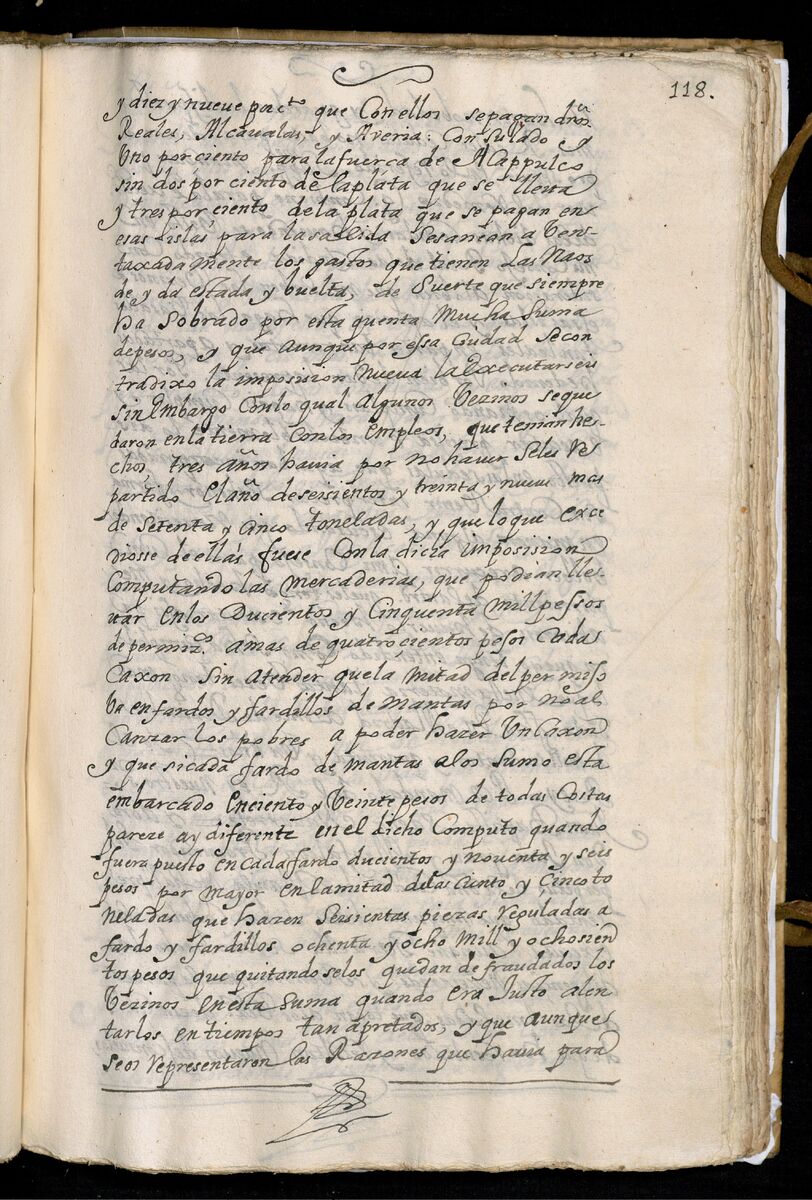 118.
y diez y nueve pactº que Con ellos se pagan dr̃os
Reales, Alcaualas, y Averia: Consulado y
Vno por ciento para la fuerca de Acappulco
sin dos por ciento de la plata que se lleua
y tres por ciento de la plata que se pagan en
esas islas para la salida Sesanean a Vens
taxadamente los gastos que tienen las Naos
de yda estada y buelta, de Suerte que siempre
ha Sobrado por esta quenta Mucha Suma
de pesos, y que aunque por essa Ciudad Se con
tradixo la imposision Nueva la Executarseis
sin Embargo Con lo qual algunos Vezinos se que
daron en la tierra Con los Empleos, que tenian he-
chos, tres años havia por no haver Seles Re
partido El año de seisientos y treinta y nueue mas
de Setenta y Cinco toneladas, y que lo que Exce
diosse de ellas fuese Con la dicha imposision
Computando las Mercaderias, que podian lle-
uar En los Ducientos y Cinquenta mill pessos
de permizº. a mas de quatrocientos pesos Cada
Caxon Sin atender que la Mitad del permiso
Va en fardos y fardillos de Mantas por no al
Canzar los pobres a poder hazer Vn Caxon
y que si cada fardo de mantas a lo Sumo esta
embarcado En ciento y Veinte pesos de todas Costas
pareze ay diferente en el dicho Computo quando
fuera puesto en cada fardo ducientos y noventa y seis
pesos por Mayor En la mitad de las Ciento y Cinco to
neladas que hazen Seisientas piezas reguladas a
fardo y fardillos ochenta y ocho Mill y ochosien
tos pesos que quitandoselos quedan defraudados los
Vezinos en esta Suma quando era Justo alen
tarlos en tiempos tan apretados, y que aunque
se os representaron las Razones que havia para